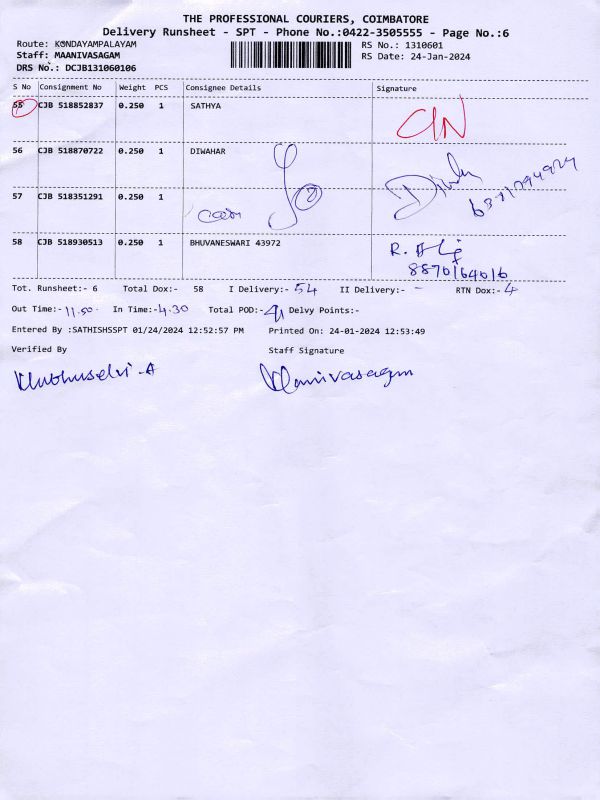 THE PROFESSIONAL COURIERS, COIMBATORE
Delivery Runsheet - SPT - Phone No.:0422-3505555 - Page No.:6
Route: KONDAYAMPALAYAM
RS No.: 1310601
Staff: MAANIVASAGAM
RS Date: 24-Jan-2024
DRS No.: DCJB131060106
S No Consignment No Weight PCS Consignee Details Signature
55 CJB 518852837 0.250 1 SATHYA
56 CJB 518870722 0.250 1 DIWAHAR
57 CJB 518351291 0.250 1
58 CJB 518930513 0.250 1 BHUVANESWARI 43972
8870164016
Tot. Runsheet:- 6 Total Dox:- 58 I Delivery:- 54 II Delivery:- - RTN Dox:- 4
Out Time:- 11.50 In Time:- 4.30 Total POD:- Delvy Points:-
Entered By :SATHISHSSPT 01/24/2024 12:52:57 PM Printed On: 24-01-2024 12:53:49
Verified By Staff Signature
Manivasagam